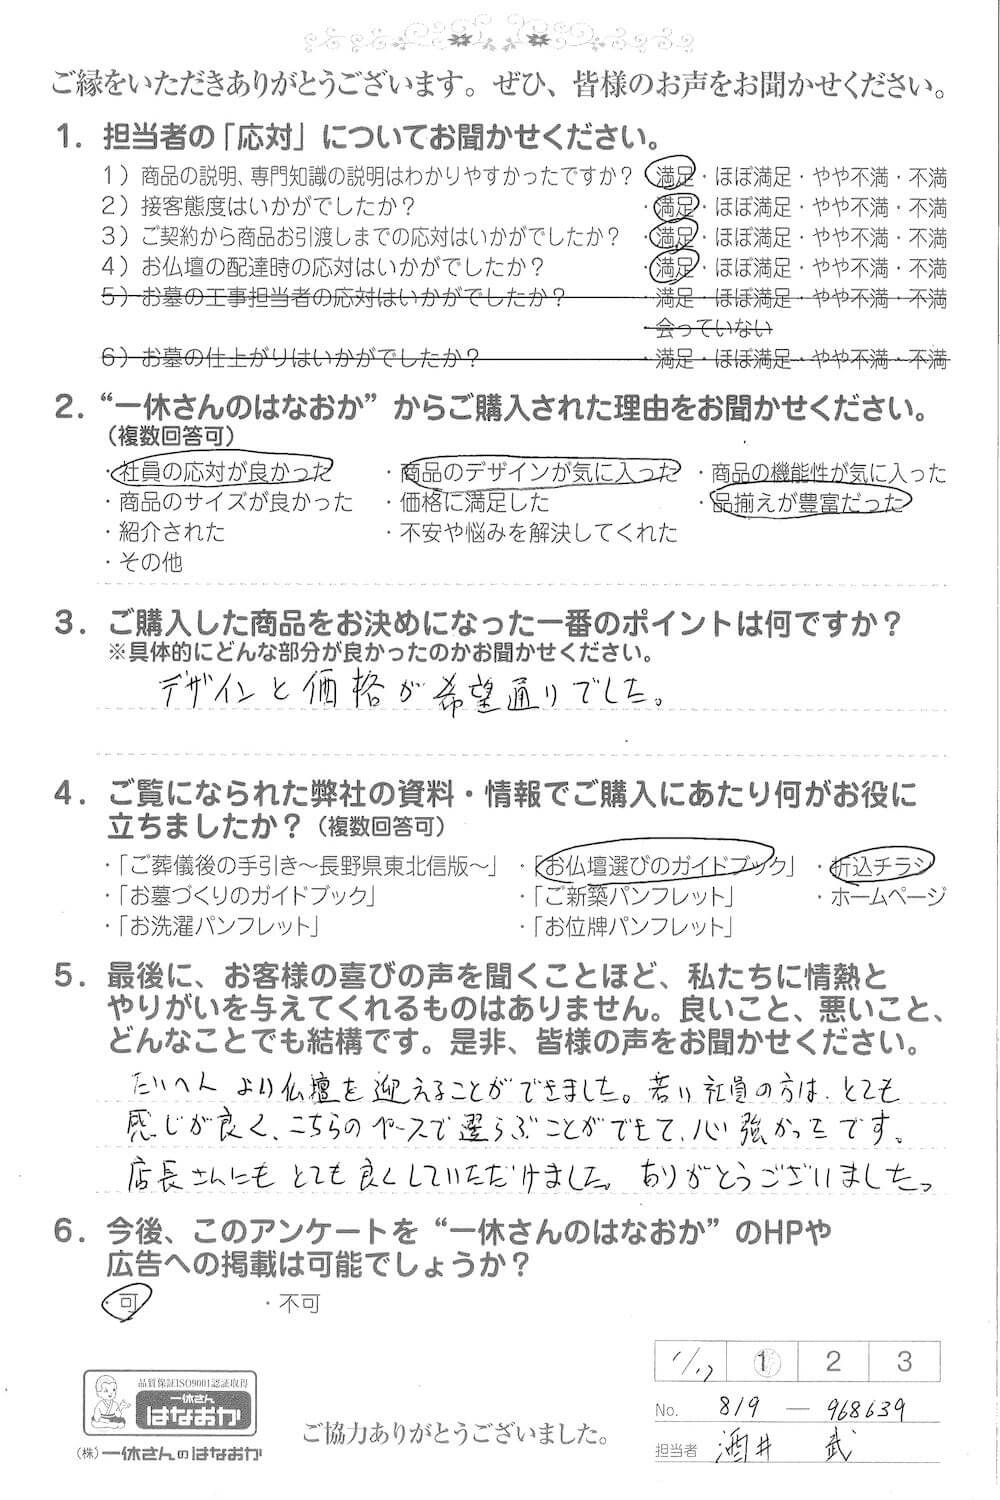 ご縁をいただきありがとうございます。ぜひ、皆様のお声をお聞かせください。
1. 担当者の「応対」についてお聞かせください。
1）商品の説明、専門知識の説明はわかりやすかったですか？ ・満足・ほぼ満足・やや不満・不満
2）接客態度はいかがでしたか？ ・満足・ほぼ満足・やや不満・不満
3）ご契約から商品お引渡しまでの応対はいかがでしたか？ ・満足・ほぼ満足・やや不満・不満
4）お仏壇の配達時の応対はいかがでしたか？ ・満足・ほぼ満足・やや不満・不満
5）お墓の工事担当者の応対はいかがでしたか？ ・満足・ほぼ満足・やや不満・不満
・会っていない
6）お墓の仕上がりはいかがでしたか？ ・満足・ほぼ満足・やや不満・不満
2. “一休さんのはなおか”からご購入された理由をお聞かせください。
（複数回答可）
・社員の応対が良かった ・商品のデザインが気に入った ・商品の機能性が気に入った
・商品のサイズが良かった ・価格に満足した ・品揃えが豊富だった
・紹介された ・不安や悩みを解決してくれた
・その他
3. ご購入した商品をお決めになった一番のポイントは何ですか？
※具体的にどんな部分が良かったのかお聞かせください。
デザインと価格が希望通りでした。
4. ご覧になられた弊社の資料・情報でご購入にあたり何がお役に
立ちましたか？（複数回答可）
・「ご葬儀後の手引き〜長野県東北信版〜」 ・「お仏壇選びのガイドブック」 ・折込チラシ
・「お墓づくりのガイドブック」 ・「ご新築パンフレット」 ・ホームページ
・「お洗濯パンフレット」 ・「お位牌パンフレット」
5. 最後に、お客様の喜びの声を聞くことほど、私たちに情熱と
やりがいを与えてくれるものはありません。良いこと、悪いこと、
どんなことでも結構です。是非、皆様の声をお聞かせください。
たいへん より仏壇を迎えることができました。若い社員の方は、とても
感じが良く、こちらのペースで選らぶことができて、心強かったです。
店長さんにも とても良くしていただけました。ありがとうございました。
6. 今後、このアンケートを“一休さんのはなおか”のHPや
広告への掲載は可能でしょうか？
・可 ・不可
1/17 1 2 3
品質保証ISO9001認証取得
一休さん
はなおか
（株）一休さんのはなおか
ご協力ありがとうございました。
No. 819 — 968639
担当者 酒井 武